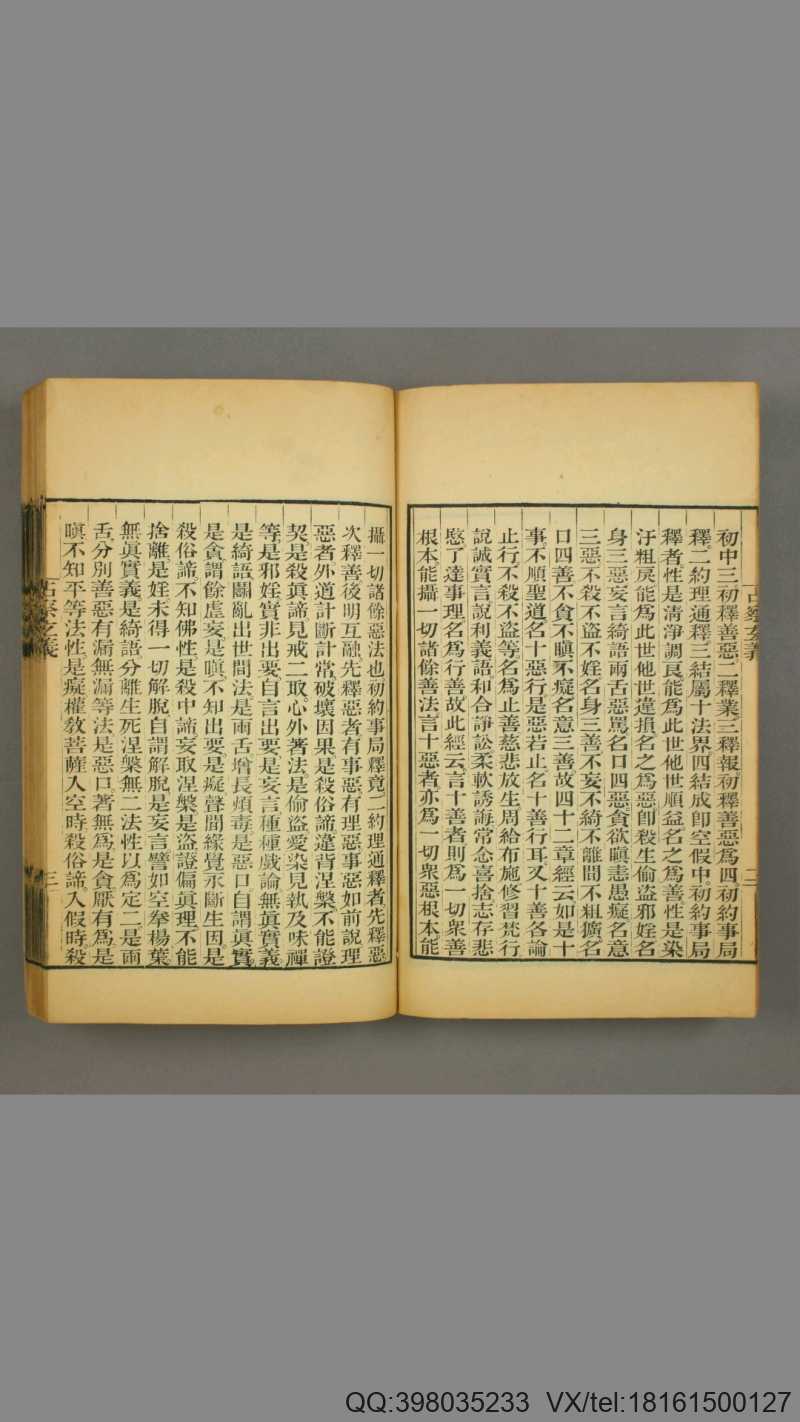 初中三初釋善惡二釋業三釋報初釋善惡爲四初約事局
釋二約理通釋三結屬十法界四結成卽空假中初約事局
釋者性是清淨調良能爲此世他世順益名之爲善性是染
汙粗戾能爲此世他世違損名之爲惡卽殺生偷盜邪婬名
身三惡妄言綺語兩舌惡罵名口四惡貪欲瞋恚愚癡名意
三惡不殺不盜不婬名身三善不妄不綺不離間不粗獷名
口四善不貪不瞋不癡名意三善故四十二章經云如是十
事不順聖道名十惡行是惡若止名十善行耳又十善各論
止行不殺不盜等名爲止善慈悲放生周給布施修習梵行
說誠實言說利義語和合諍訟柔軟誘誨常念喜捨志存悲
愍了達事理名爲行善故此經云言十善者則爲一切衆善
根本能攝一切諸餘善法言十惡者亦爲一切衆惡根本能
占察玄義
二
攝一切諸餘惡法也初約事局釋竟二約理通釋者先釋惡
次釋善後明互融先釋惡者有事惡有理惡事惡如前說理
惡者外道計斷計常破壞因果是殺俗諦違背涅槃不能證
契是殺眞諦見戒二取心外著法是偷盜愛染見執及味禪
等是邪婬實非出要自言出要是妄言種種戲論無眞實義
是綺語鬭亂出世間法是兩舌增長煩毒是惡口自謂眞實
是貪謂餘虛妄是瞋不知出要是癡聲聞緣覺永斷生因是
殺俗諦不知佛性是殺中諦妄取涅槃是盜證偏眞理不能
捨離是婬未得一切解脫自謂解脫是妄言譬如空拳楊葉
無眞實義是綺語分離生死涅槃無二法性以爲定二是兩
舌分別善惡有漏無漏等法是惡口著無爲是貪厭有爲是
瞋不知平等法性是癡權敎菩薩入空時殺俗諦入假時殺
三
QQ:398035233 VX/tel:18161500127